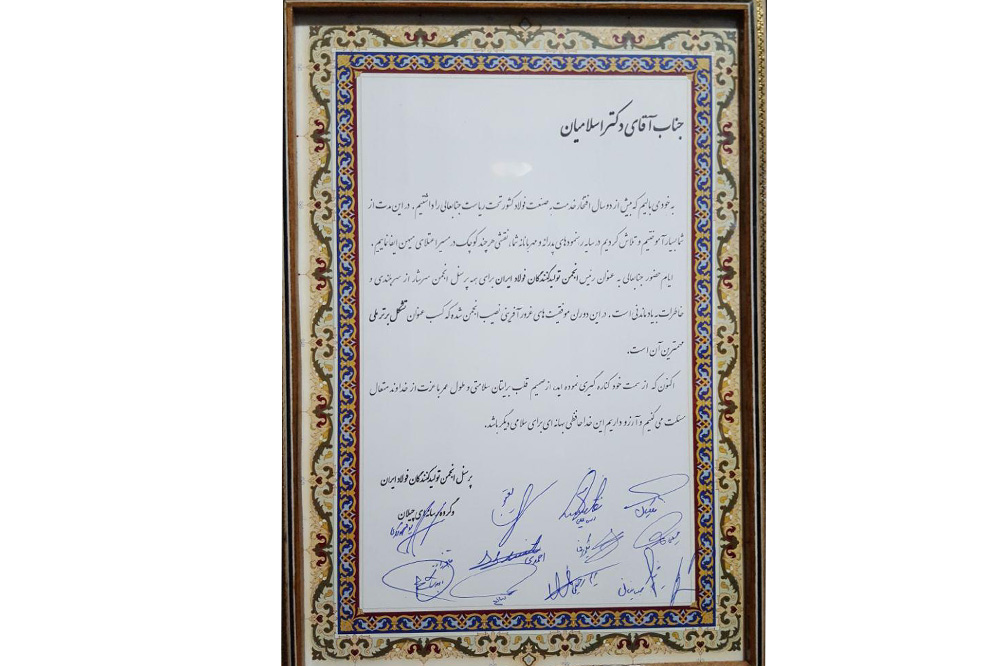 جناب آقای دکتر اسلامیان
به خود می بالیم که بیش از دو سال افتخار خدمت به صنعت فولاد کشور تحت ریاست جنابعالی را داشتیم. در این مدت از
شما بسیار آموختیم و تلاش کردیم در سایه رهنمودهای پدرانه و مهربانانه شما، نقشی هر چند کوچک در مسیر اعتلای میهن ایفا نماییم.
ایام حضور جنابعالی به عنوان رئیس انجمن تولیدکنندگان فولاد ایران برای همه پرسنل انجمن سرشار از سربلندی و
خاطرات به یاد ماندنی است. در این دوران موفقیت های غرور آفرینی نصیب انجمن شده که کسب عنوان تشکل برتر ملی
مهمترین آن است.
اکنون که از سمت خود کناره گیری نموده اید، از صمیم قلب برایتان سلامتی و طول عمر با عزت از خداوند متعال
مسئلت می کنیم و آرزو داریم این خداحافظی بهانه ای برای سلامی دیگر باشد.
پرسنل انجمن تولیدکنندگان فولاد ایران
و گروه رسانه ای چیلان
احمدی